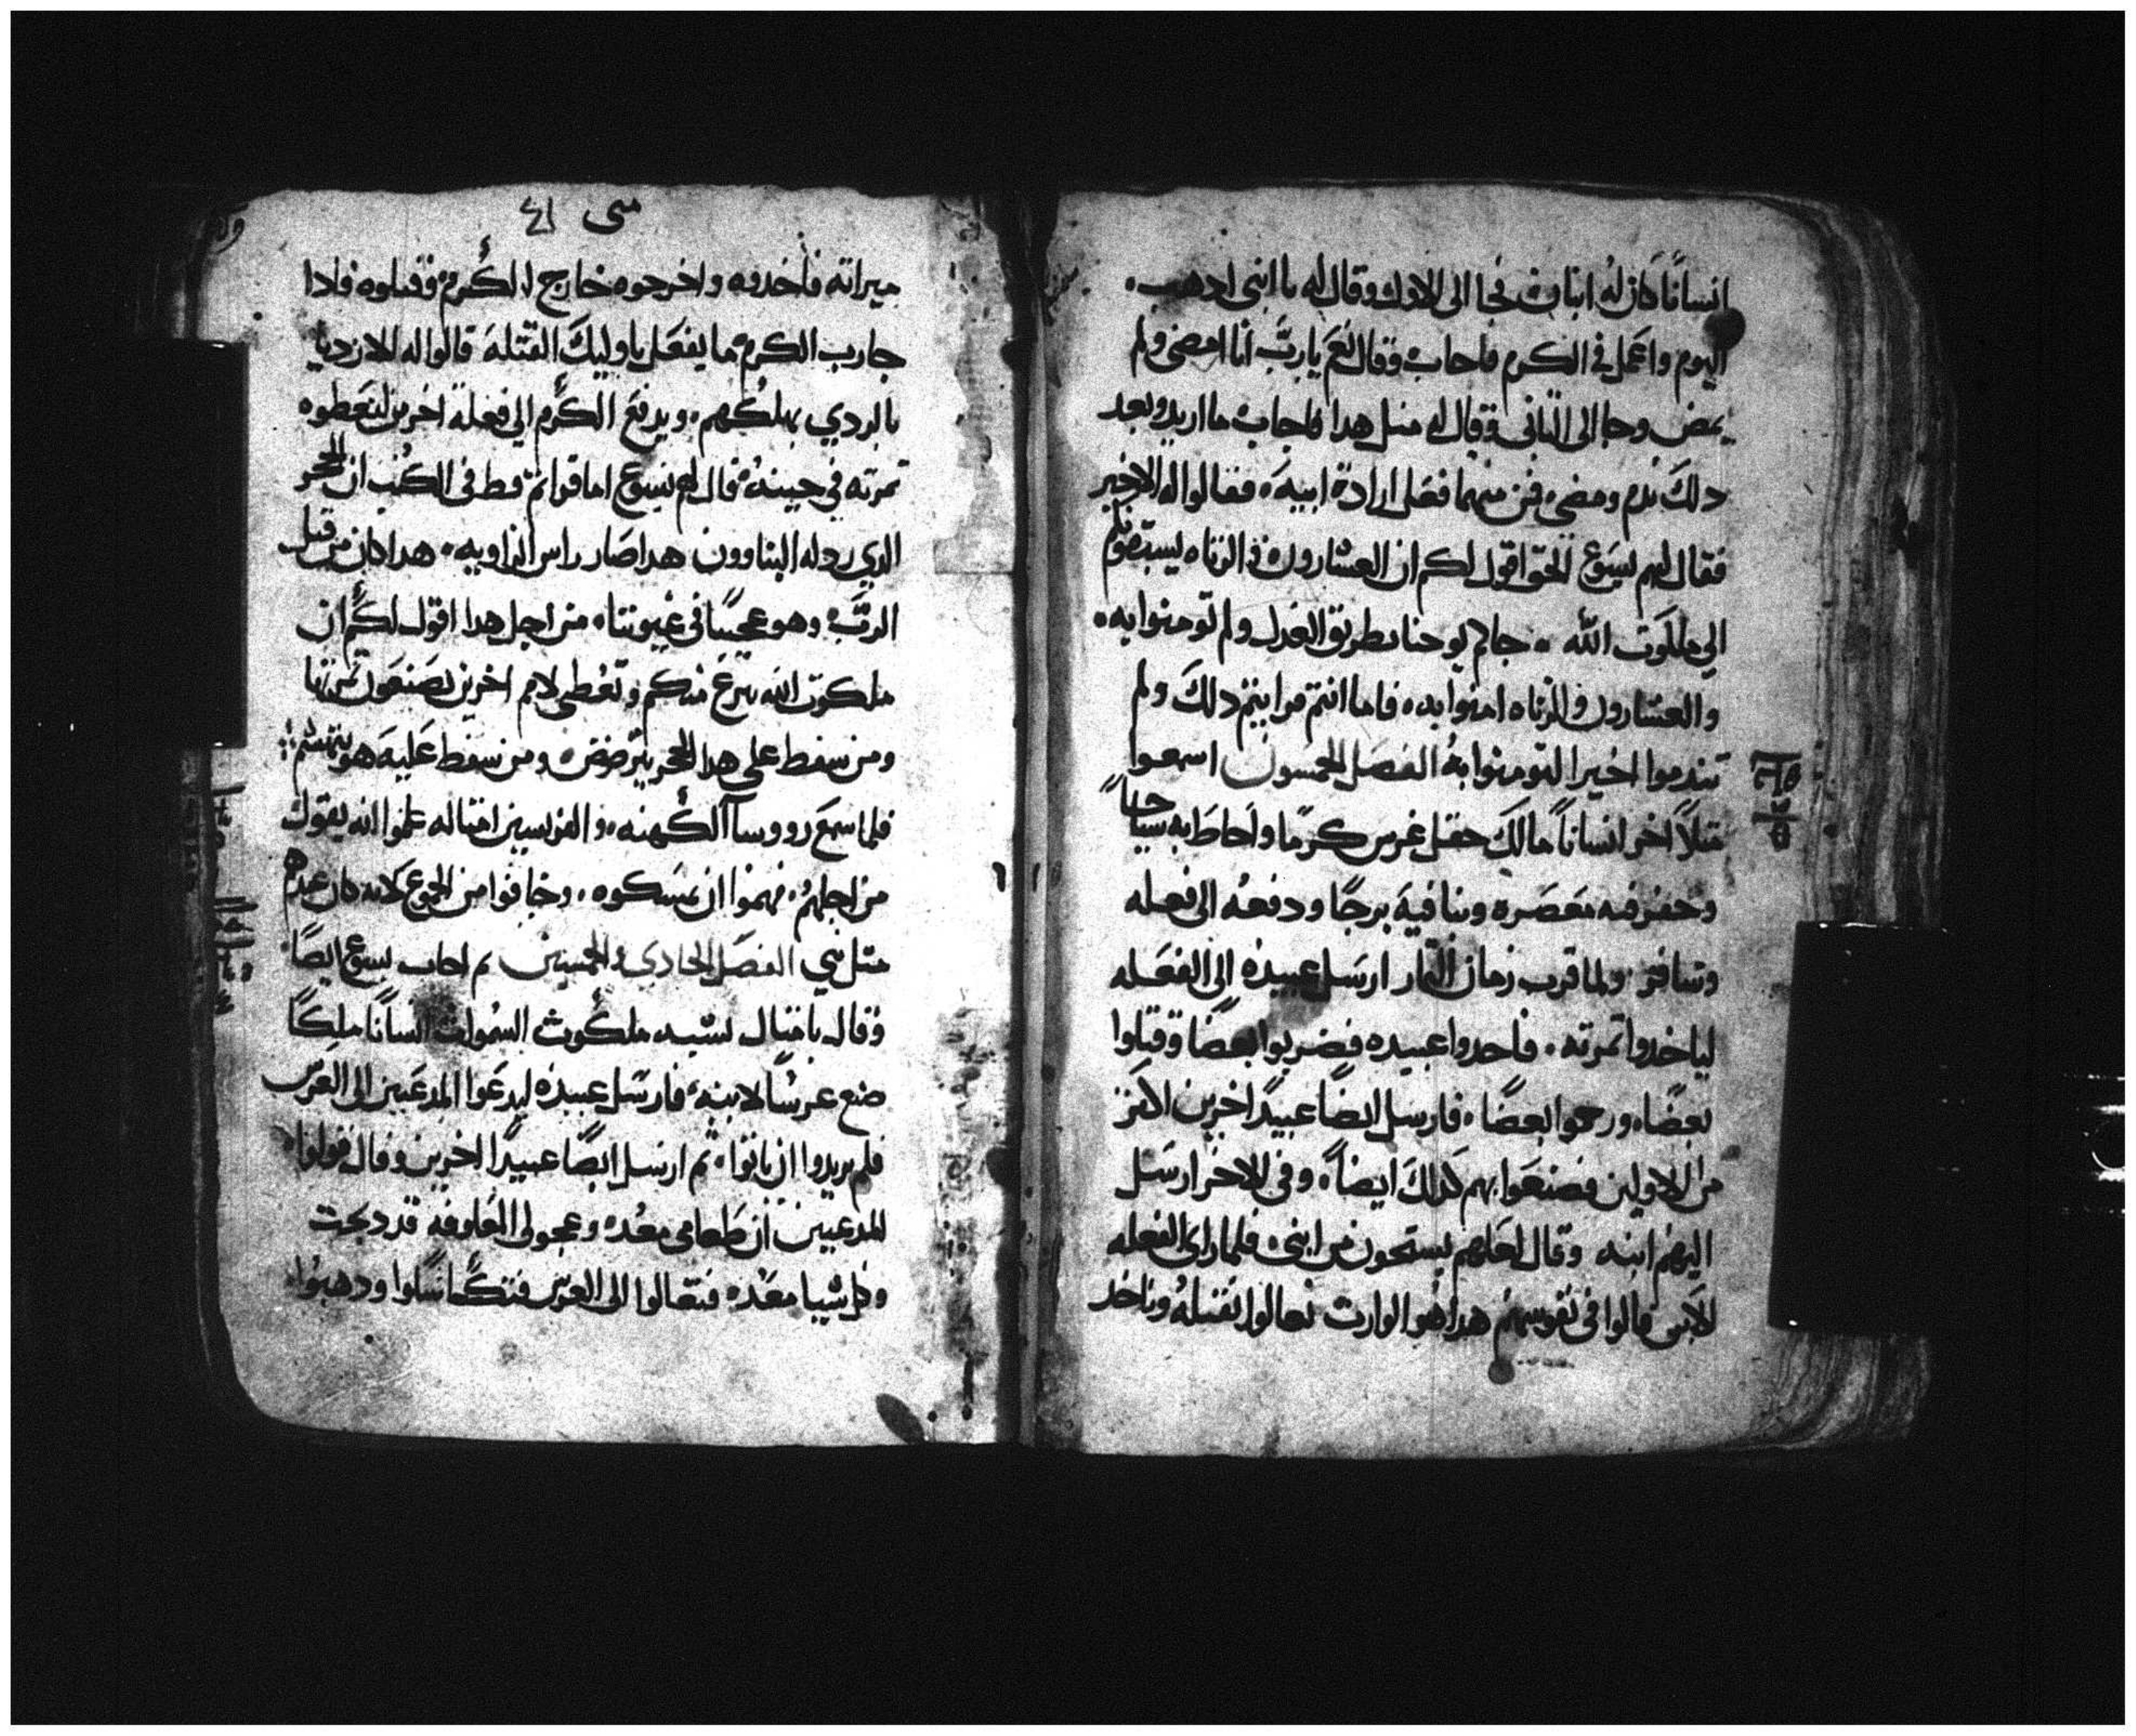 انسانًا كان له ابنان فجا الى الاول وقال له يا ابنى ادهب
اليوم واعمل في الكرم فاجاب وقال نعم يا ربّ أنا امضى ولم
يمض وجا الى التانى وقال له متل هدا فاجاب ما اريد وبعد
دلك ندم ومضى فمن منهما فعل ارادة ابيه فقالوا له الاخير
فقال لهم يسوع الحق اقول لكم ان العشارون والزناه يسبقونكم
الي ملكوت الله جاكم يوحنا بطريق العدل ولم تومنوا به
والعشارون والزناه امنوا به فاما انتم فرايتم دلك ولم
تندموا اخيرا لتومنوا به الفصل الخمسون اسمعوا
متلاً اخر انساناً مالك حقل غرس كرمًا واحاط به سياجاً
وحفر فيه معصره وبنا فيه برجًا ودفعه الى فعله
وسافر ولما قرب زمان التمار ارسل عبيده الى الفعله
لياخدوا تمرته فاخدوا عبيده فضربوا بعضًا وقتلوا
بعضًا ورجموا بعضًا فارسل ايضًا عبيدًا اخرين اكتر
من الاولين فصنعوا بهم كدلك ايضاً وفى الاخر ارسل
اليهم ابنه وقال لعلهم يستحون من ابنى فلما راى الفعله
الابن قالوا فى نفوسهم هدا هو الوارت تعالوا نقتله وناخد
متى ٤١
ميراته فأخدوه واخرجوه خارج الكرم وقتلوه فادا
جا رب الكرم ما يفعل باوليك الفعلة قالوا له الارديا
بالردي يهلكهم ويدفع الكرم الي فعلة اخرين ليعطوه
تمرته في حينه قال لهم يسوع اما قراتم قط فى الكتب ان الحجر
الدي ردله البناوون هدا صار راس الزاويه هدا كان من قبل
الربّ وهو عجيبًا في عيوننا من اجل هدا اقول لكم ان
ملكوت الله تنزع منكم وتعطى لامم اخرين يصنعون تمرتها
ومن سقط على هدا الحجر يترضض ومن سقط عليه هو يتهشم
فلما سمع رووسا الكهنه والفريسيين امتاله علموا انه يقول
من اجلهم فهموا ان يمسكوه وخافوا من الجموع لانه كان عندهم
متل نبي الفصل الحادي والخمسين تم اجاب يسوع ايضًا
وقال بامتال تشبه ملكوت السموات انسانًا ملكًا
صنع عرسًا لابنه فارسل عبيده ليدعوا المدعيين الى العرس
فلم يريدوا ان ياتوا تم ارسل ايضًا عبيدًا اخرين وقال قولوا
للمدعيين ان طعامى معده وعجولى المعلوفه قد دبحت
وكل شيا معده فتعالوا الى العرس فتكاسلوا ودهبوا